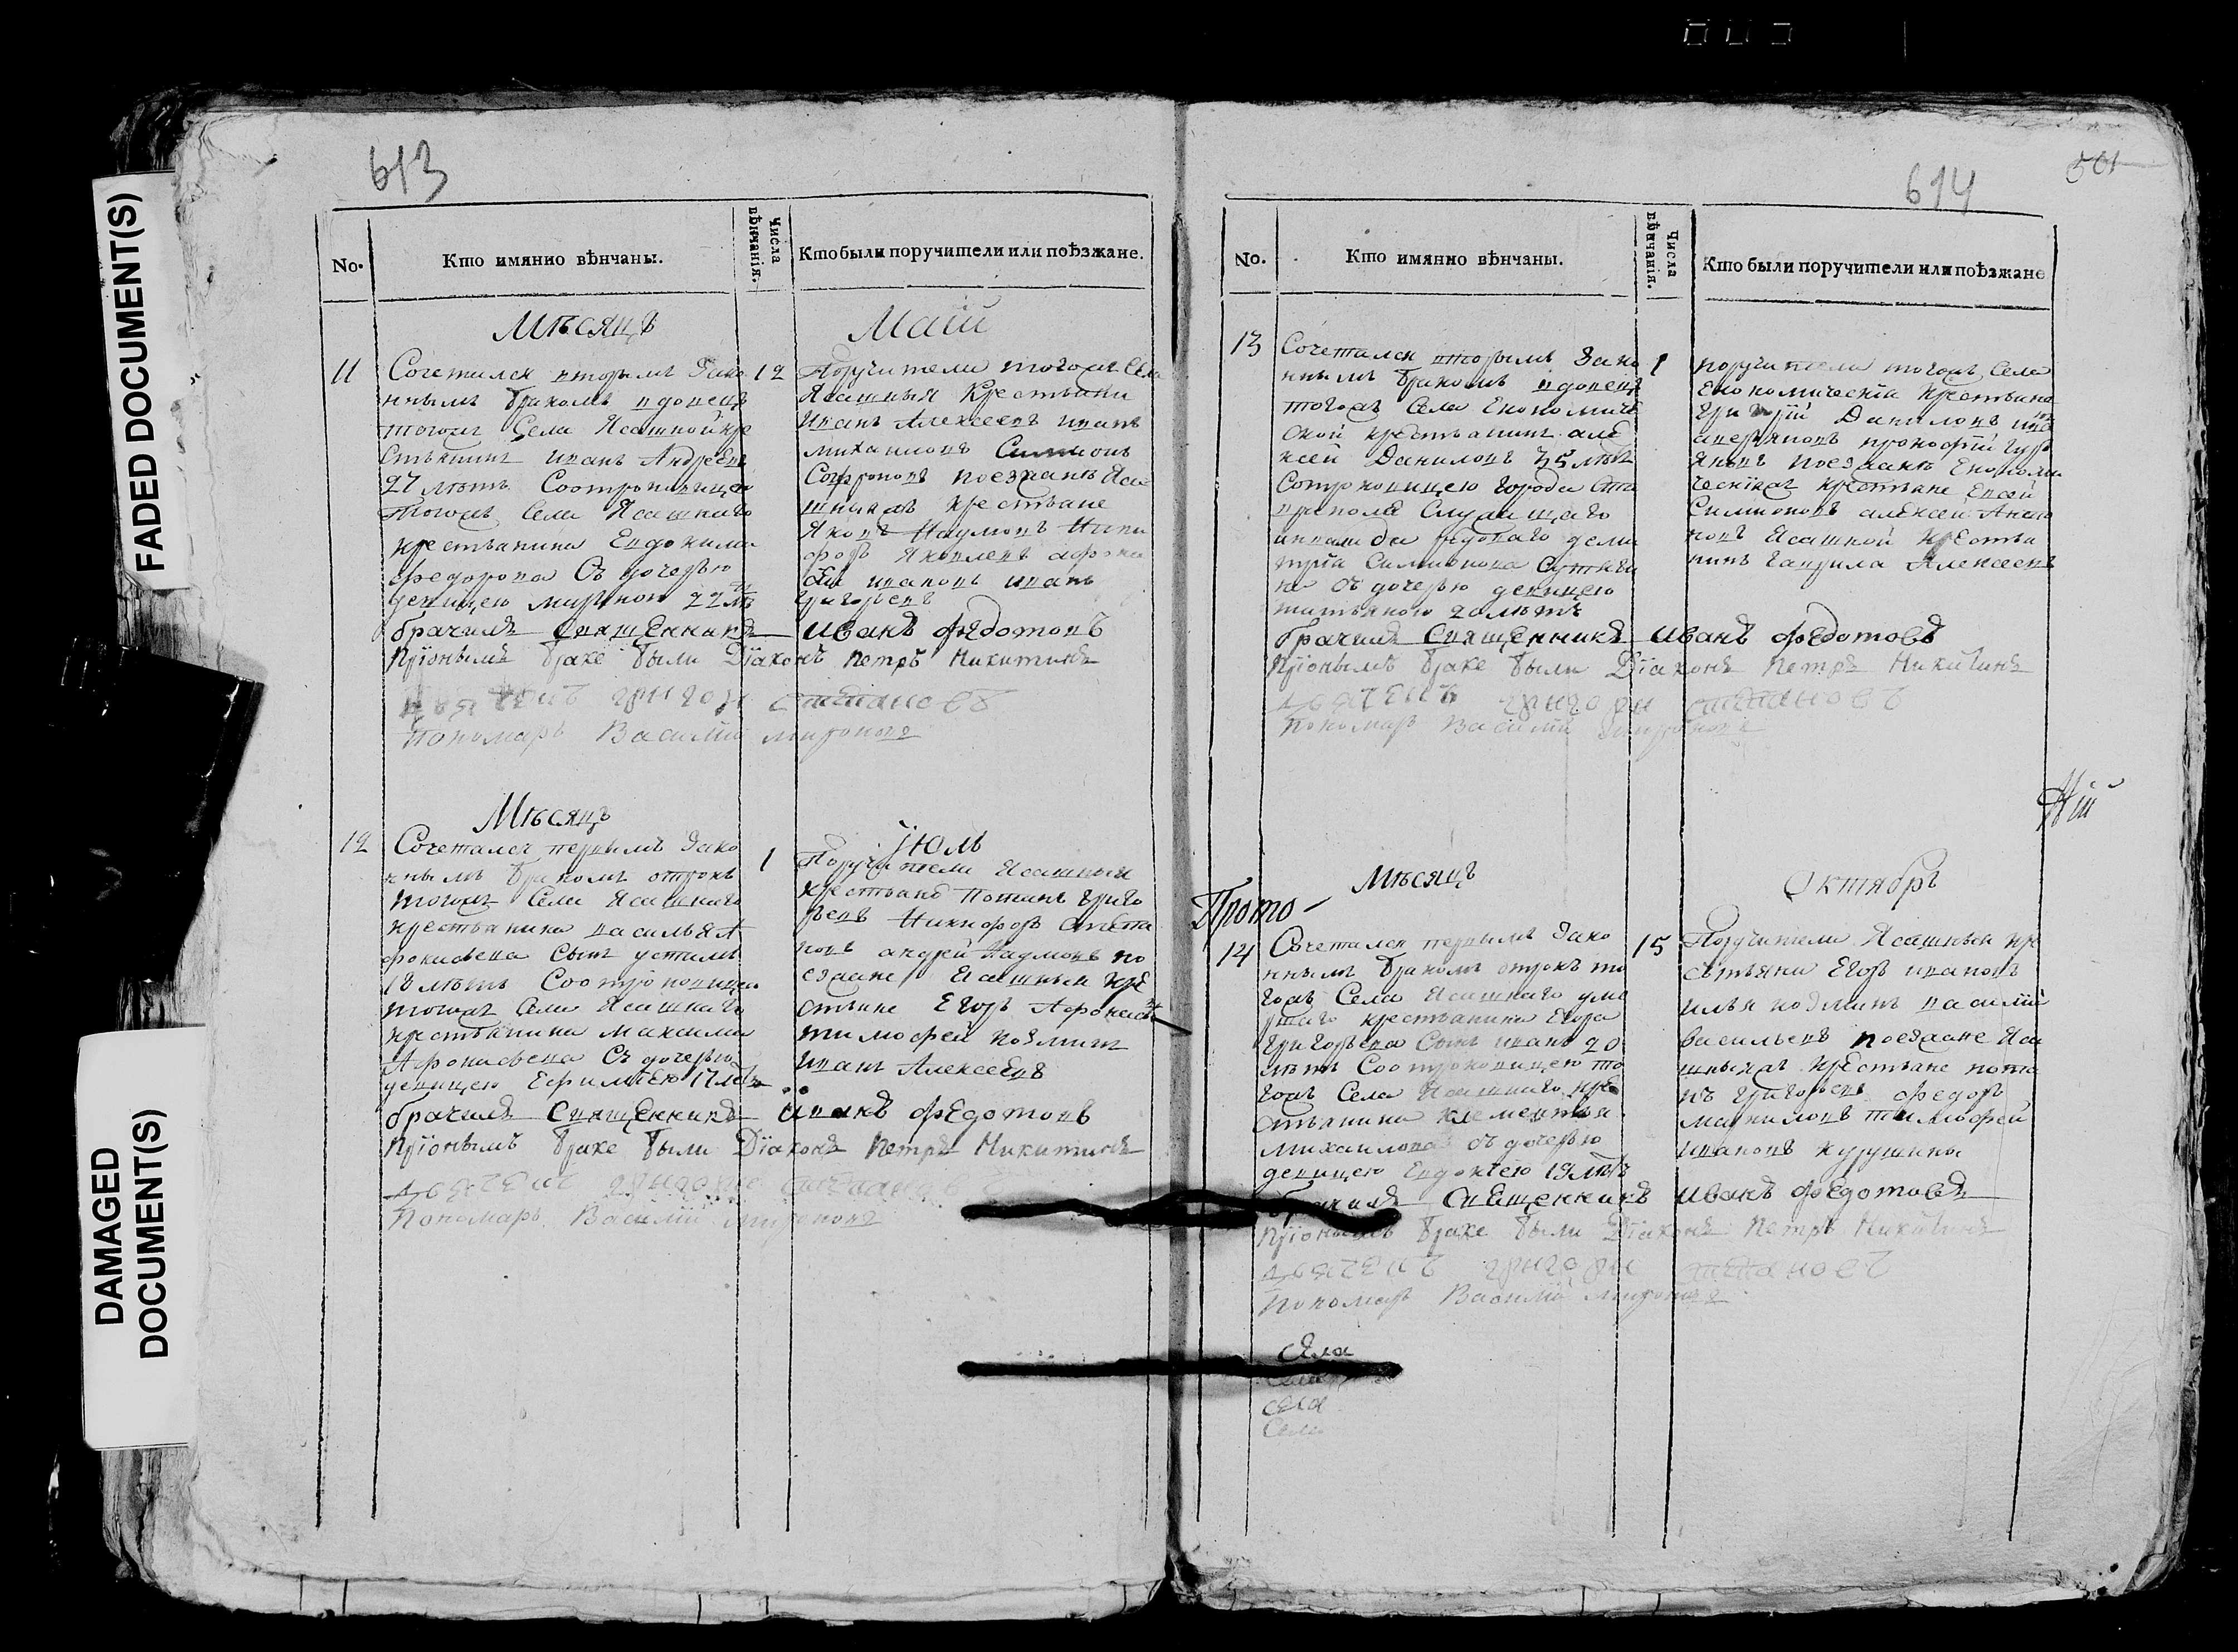 613
No.
Кто имянно вѣнчаны.
Числа вѣнчанія.
Кто были поручители или поѣзжане.
Мѣсяцъ
Маій
11
Сочетался вторымъ зако
12
ннымъ бракомъ вдовецъ
тогожъ Села Ясашной кре
стьянинъ иванъ Андреевъ
27 лѣтъ Соотроковицею
тогожъ Села Ясашнаго
крестьянина Евдокима
Федорова Съ дочерью
девицею 22 лѣ
Поручители тогожъ Села
Ясашныя Крестьяни
иванъ Алексеевъ иванъ
михаиловъ Симионъ
Софроновъ поезжанѣ Яса
шныежъ крестьяне
Яковъ Наумовъ Ники
форъ Яковлевъ афона
сѣй ивановъ иванъ
Григорьевъ
брачилъ Священникъ иванъ Федотовъ
Приономъ браке были Діаконъ петръ Никитинъ
григори степановъ
Пономарь Василій мироновъ
Мѣсяцъ
Іюль
12
Сочетался первымъ зако
1
ннымъ бракомъ отрокъ
тогожъ Села Ясашнаго
крестьянина василья А
фонасьева Сынъ устинъ
18 лѣтъ Соотроковицею
тогожъ Села Ясашнаго
крестьянина максима
Афонасьева Съ дочерью
девицею Ефимьею 17 лѣтъ
Поручители Ясашныя
крестьянѣ Потапъ Григо
рьевъ Никифоръ Степа
новъ андрей Наумовъ по
езжане Ясашныя кре
стьяне Егоръ Афонасьевъ
тимофей козминъ
иванъ Алексеевъ
брачилъ Священникъ иванъ Федотовъ
Приономъ браке были Діаконъ петръ Никитинъ
Пономарь Василій мироновъ
614
501
No.
Кто имянно вѣнчаны.
Числа вѣнчанія.
Кто были поручители или поѣзжане
13
Сочетался вторымъ зако
1
ннымъ бракомъ вдовецъ
тогожъ Села Економиче
ской крестьянинъ але
ксей Даниловъ 35 лѣтъ
Сотроковицею города Ста
врополя Служащаго
инвалида рядоваго дими
трія Симионова
на съ дочерью девицею
татьяною 20 лѣтъ
поручители тогожъ Села
Економическія крестьяне
григорій Даниловъ
аверяновъ прокофій гурь
яновъ поезжанѣ Економи
ческіяжъ крестьяне Евсей
Симионовъ алексей Анто
новъ Ясашной крестья
нинъ гаврила Алексеевъ
брачилъ Священникъ иванъ Федотовъ
Приономъ браке были Діаконъ петръ Никитинъ
григори степановъ
Пономарь Василій мироновъ
Мѣсяцъ
Октябрь
Прото-
14
Сочетался первымъ зако
15
ннымъ бракомъ отрокъ то
гожъ Села Ясашнаго уме
ршаго крестьянина Егора
Григорьева Сынъ иванъ 20
лѣтъ Соотроковицею то
гожъ Села Ясашнаго кре
стьянина клементья
михаилова съ дочерью
девицею Евдокіею 19 лѣтъ
Поручители Ясашныя кре
стьяни Егоръ ивановъ
илья козминъ василій
васильевъ поезжане Яса
шныежъ крестьяне пота
пъ Григорьевъ Федоръ
маниловъ тимофей
ивановъ
брачилъ Священникъ иванъ Федотовъ
Приономъ браке были Діаконъ петръ Никитинъ
григори степановъ
Пономарь Василій мироновъ
села
села
села
Села
FADED DOCUMENT(S)
DAMAGED
DOCUMENT(S)